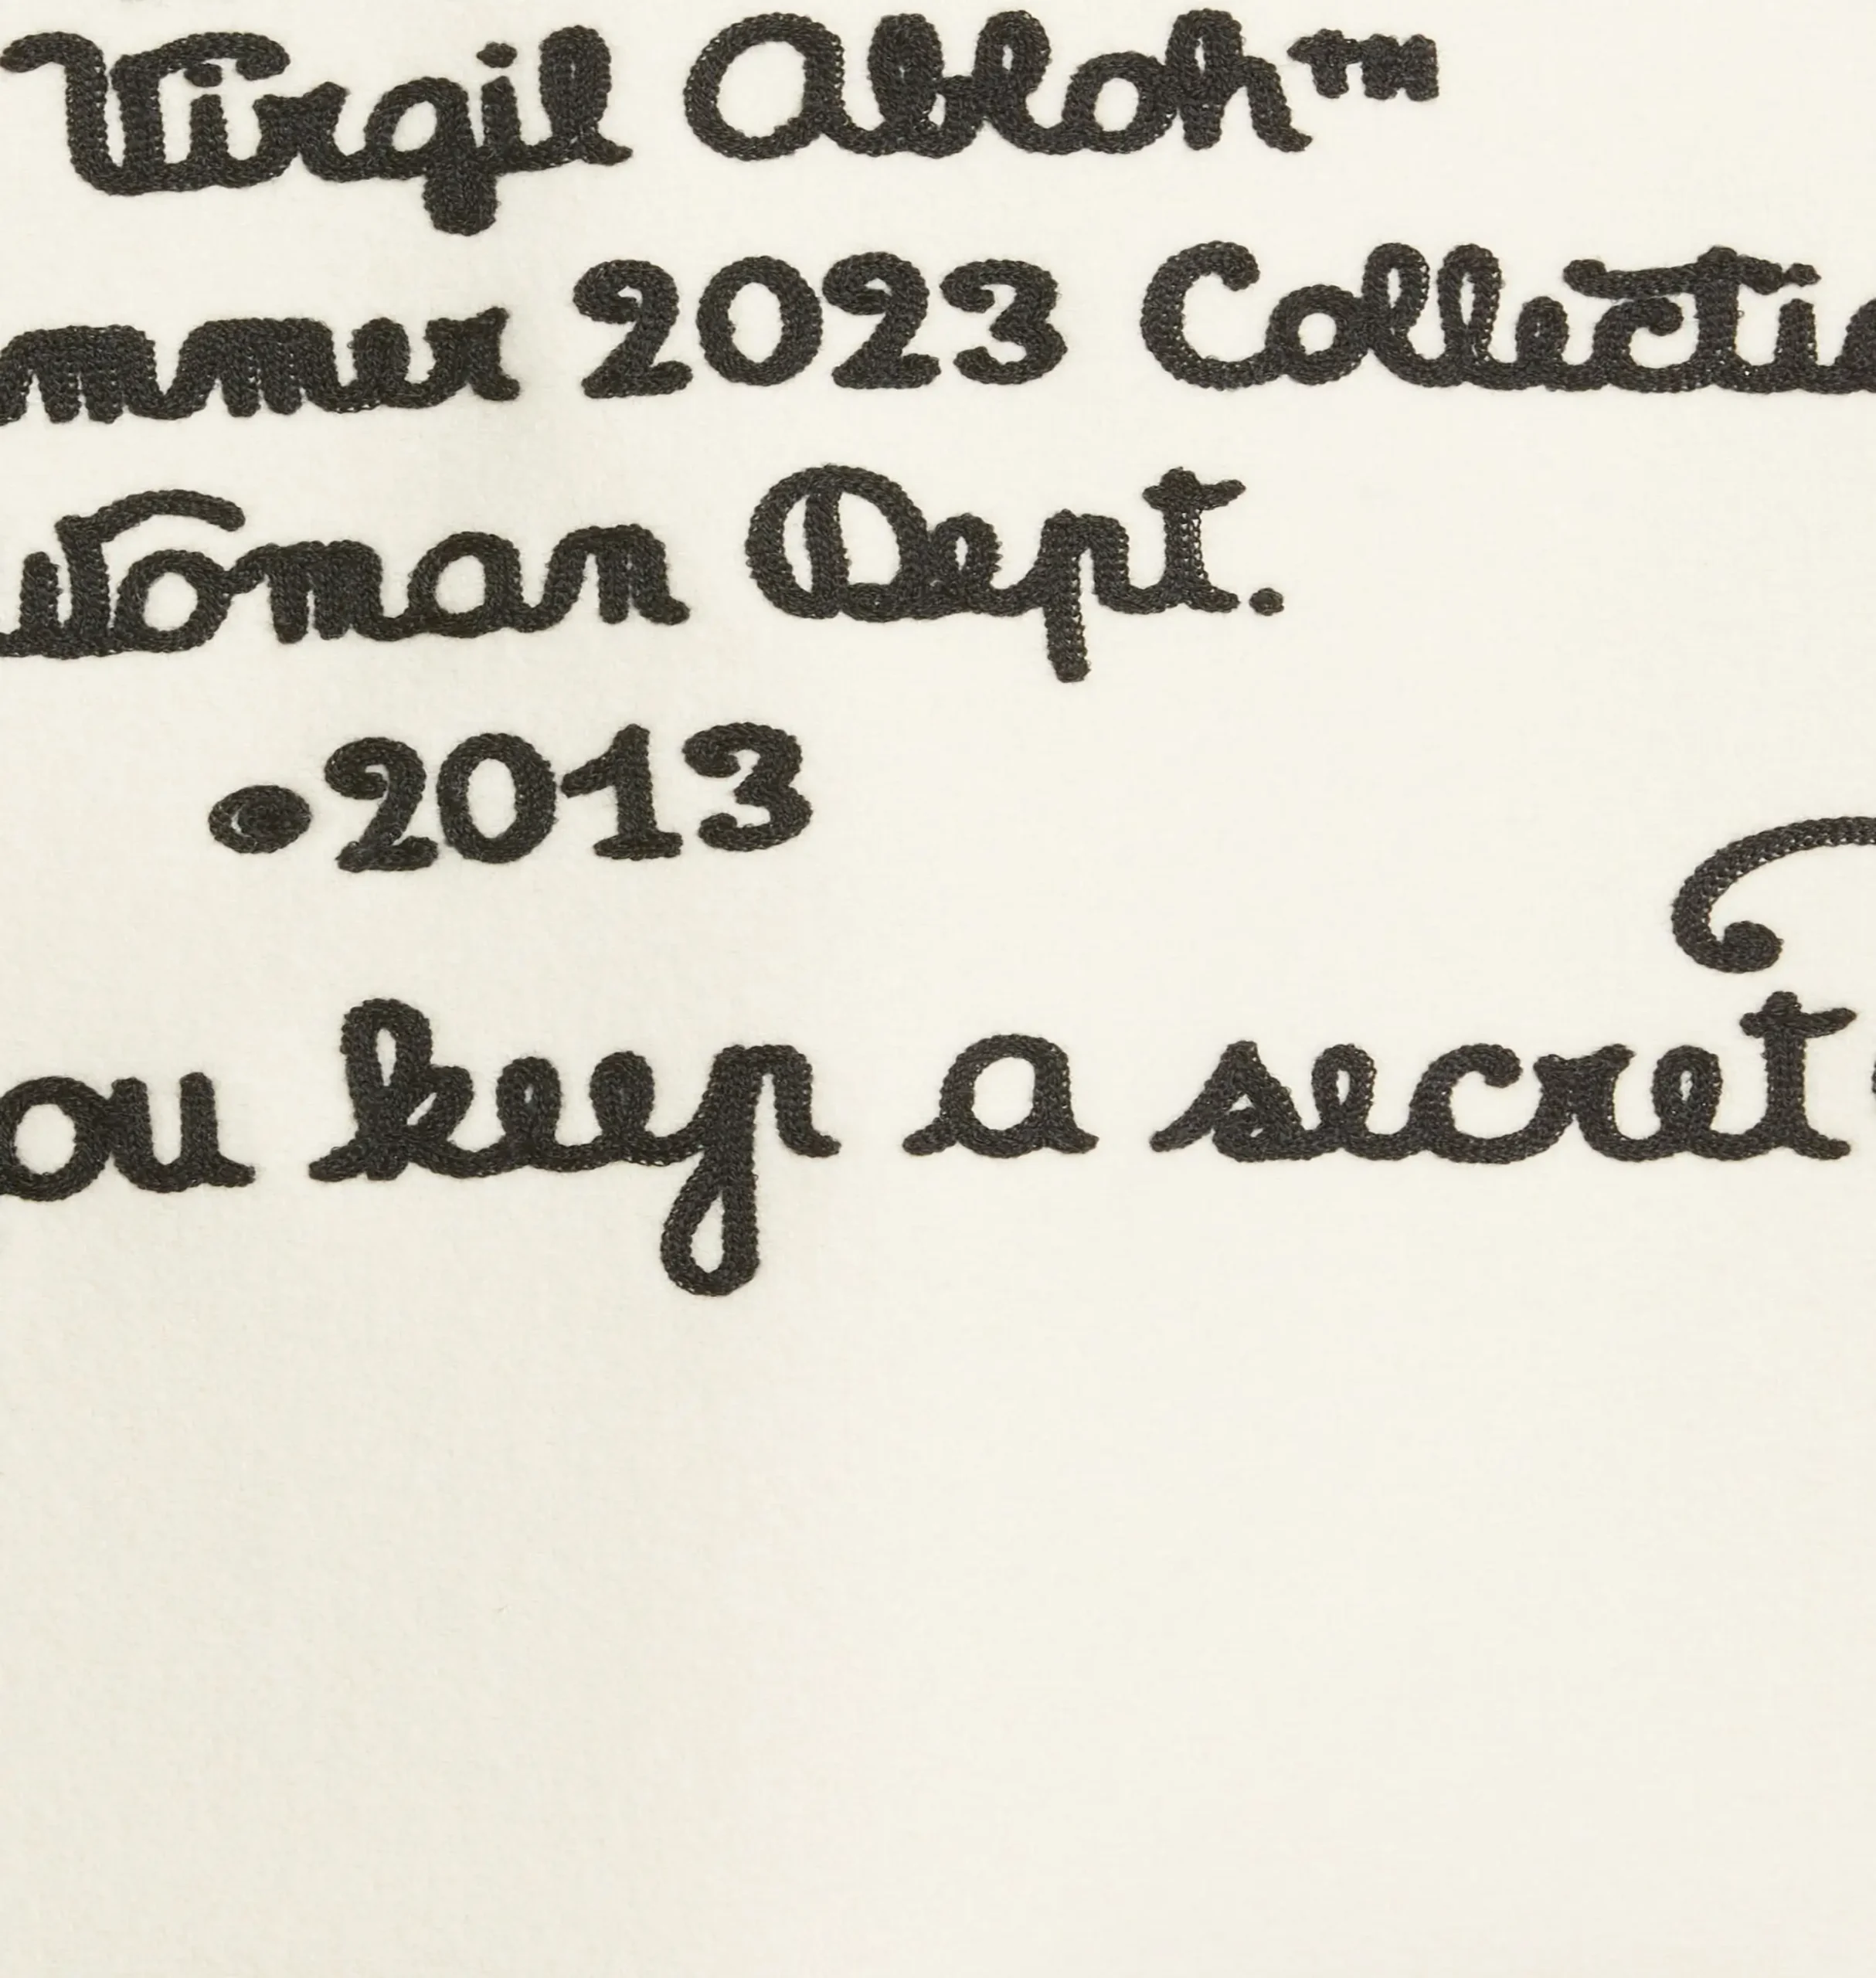 Virgil Abloh™
mmer 2023 Collectio
Woman Dept.
©2013
ou keep a secret